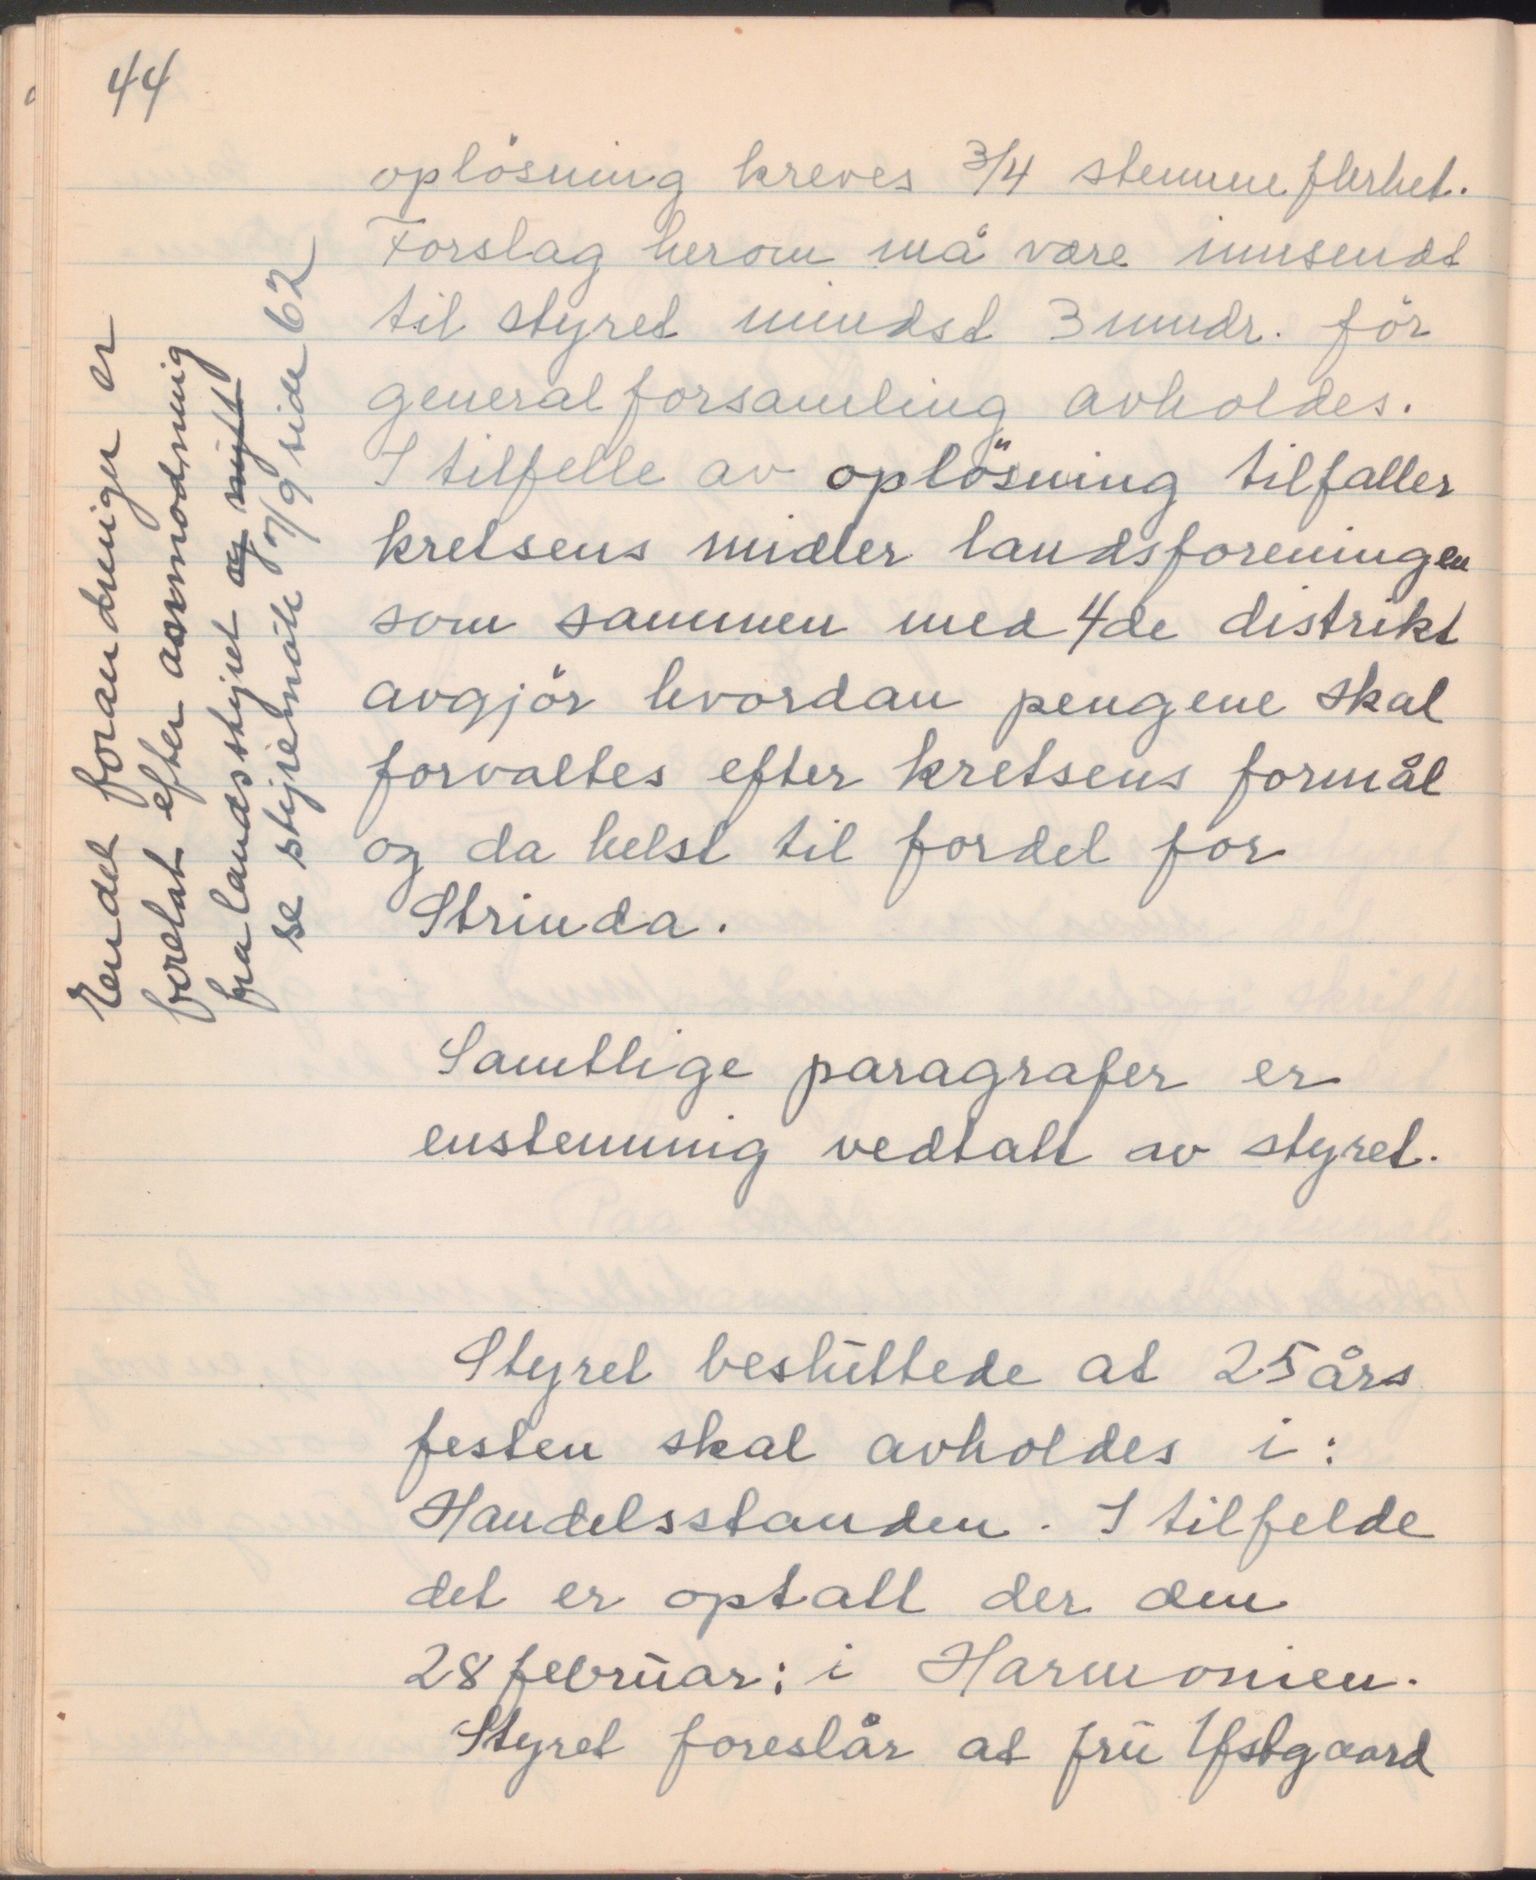 44
oplösning kreves 3/4 stemmeflerhet.
Forslag herom må være innsendt
til styret mindst 3 mndr. för
generalforsamling avholdes.
I tilfelle av oplösning tilfaller
kretsens midler landsforeningen
som sammen med 4de distrikt
avgjör hvordan pengene skal
forvaltes efter kretsens formål
og da helst til fordel for
Strinda.
Samtlige paragrafer er
enstemmig vedtatt av styret.
Styret besluttede at 25 års
festen skal avholdes i:
Handelsstanden. I tilfelde
det er optatt der den
28 februar: i Harmonien.
Styret foreslår at frü Ustgaard
Eendel forandringer er
foretat efter anmodning
fra landsstyret og nytt
se styremöte 7/9 side 62